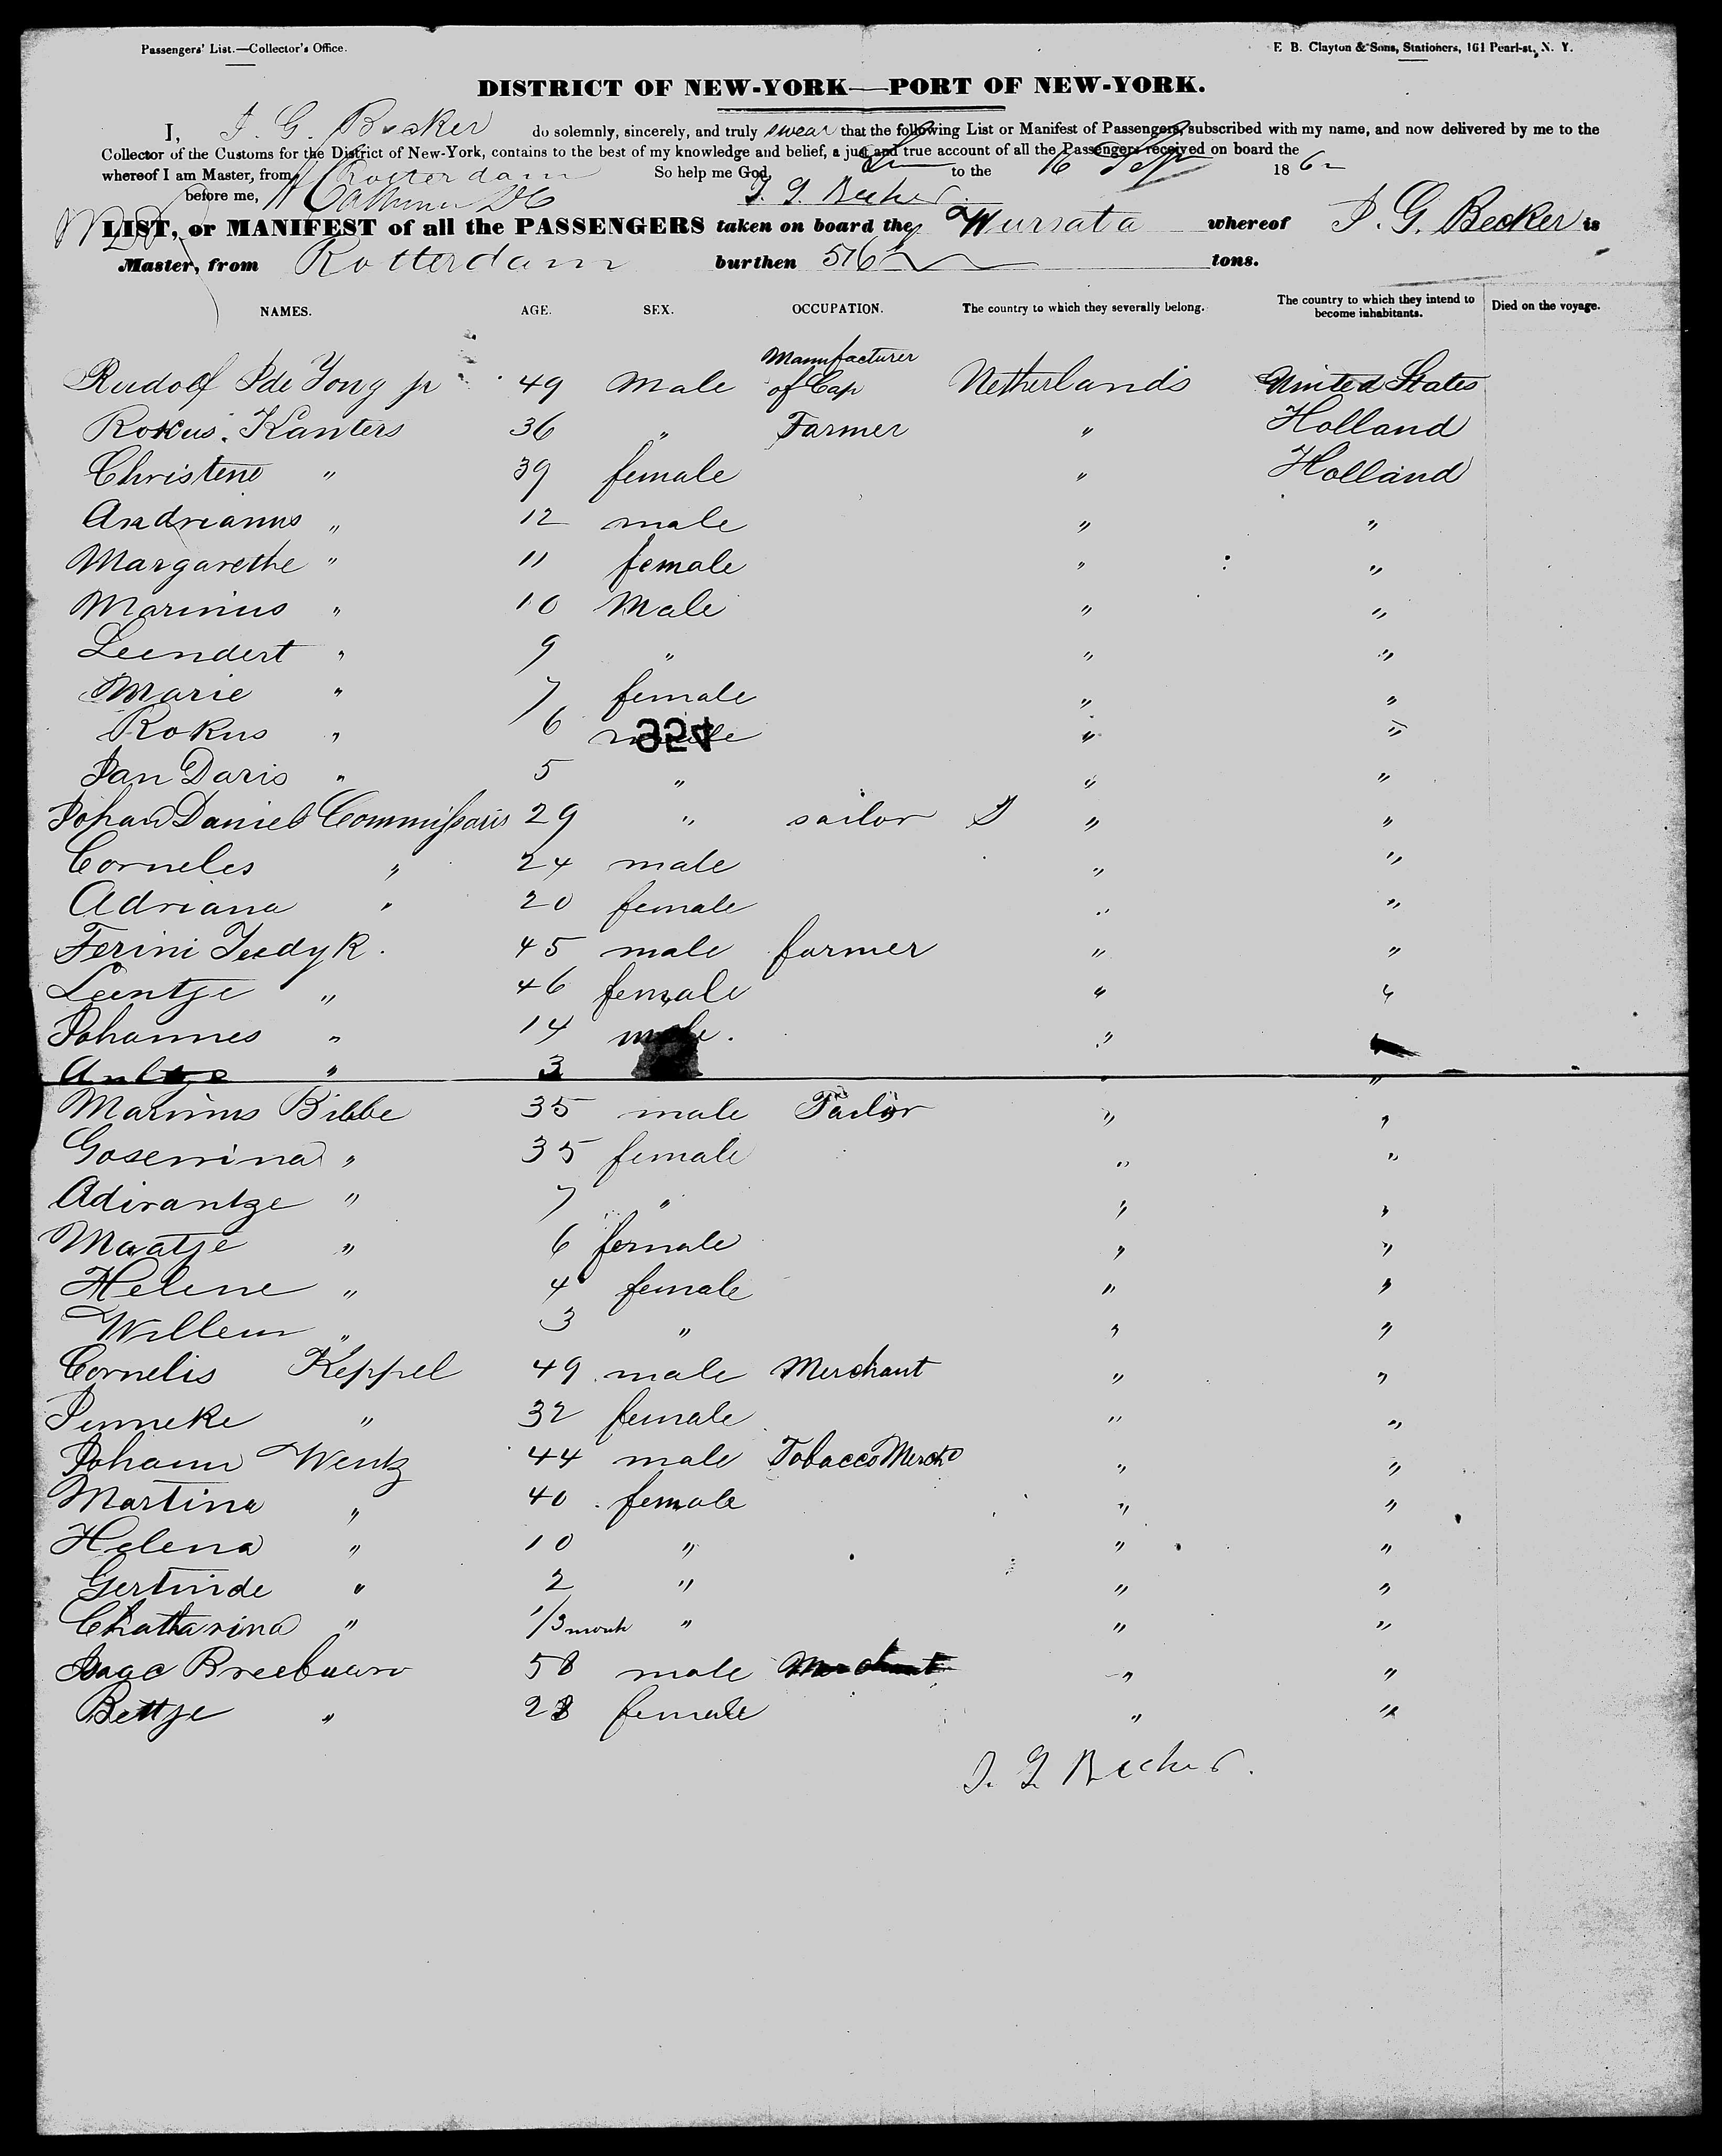 Passengers' List.—Collector's Office.
E. B. Clayton & Sons, Stationers, 161 Pearl-st., N. Y.
DISTRICT OF NEW-YORK—PORT OF NEW-YORK.
I, J. G. Becker do solemnly, sincerely, and truly swear that the following List or Manifest of Passengers, subscribed with my name, and now delivered by me to the
Collector of the Customs for the District of New-York, contains to the best of my knowledge and belief, a just and true account of all the Passengers received on board the
whereof I am Master, from Rotterdam So help me God, to the 16 Sep 1862
before me, J. G. Becker
LIST, or MANIFEST of all the PASSENGERS taken on board the Wursata whereof J. G. Becker is
Master, from Rotterdam burthen 516 tons.
NAMES. AGE. SEX. OCCUPATION. The country to which they severally belong. The country to which they intend to become inhabitants. Died on the voyage.
Rudolf J de Yong jr 49 male Manufacturer of Cap Netherlands United States
Rokus Kanters 36 " Farmer " Holland
Christene " 39 female " Holland
Andrianus " 12 male " "
Margarethe " 11 female " "
Marinus " 10 Male " "
Leendert " 9 " " "
Marie " 7 female " "
Rokus " 6 male " "
324
Jan Daris " 5 " " "
Johan Daniel Commissaris 29 " sailor " "
Corneles " 24 male " "
Adriana " 20 female " "
Ferini Teedyk. 45 male farmer " "
Leentje " 46 female " "
Johannes " 14 male. "
" 3 " "
Marinus Bibbe 35 male Tailor " "
Goserrina " 35 female " "
Adirantze " 7 " " "
Maatje " 6 female " "
Helene " 4 female " "
Willem " 3 " " "
Cornelis Keppel 49 male Merchant " "
Jenneke " 32 female " "
Johann Wentz 44 male Tobacco Mercht " "
Martina " 40 female " "
Helena " 10 " " "
Gertinde " 2 " " "
Chattarina " 1/3 month " " "
Isaac Breebaaro 58 male Merchant " "
Bettje " 28 female " "
J. G Becker.